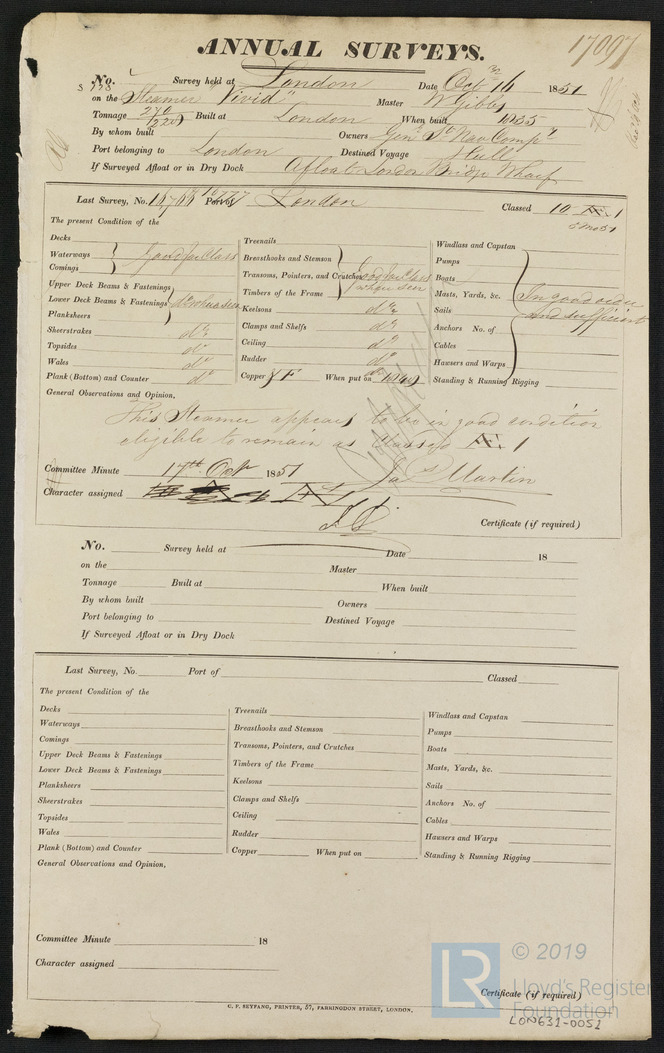 ANNUAL SURVEYS.
17097
No. Survey held at London Date Octr 16 1851
on the Steamer "Vivid" Master W Gibbs
Tonnage 220 Built at London When built 1835
By whom built Owners Genl St Nav Compy
Port belonging to London Destined Voyage Hull
If Surveyed Afloat or in Dry Dock Afloat London Bridge Wharf
Last Survey, No. Port of London Classed 10 1
The present Condition of the
Decks
Waterways
Comings
Good for Class
Upper Deck Beams & Fastenings
Lower Deck Beams & Fastenings
Planksheers
do when seen
Sheerstrakes do
Topsides do
Wales do
Plank (Bottom) and Counter do
Treenails
Breasthooks and Stemson
Transoms, Pointers, and Crutches
Timbers of the Frame
Good for Class
when seen
Keelsons do
Clamps and Shelfs do
Ceiling do
Rudder do
Copper When put on 1849
Windlass and Capstan
Pumps
Boats
Masts, Yards, &c.
Sails
Anchors No. of
Cables
Hawsers and Warps
Standing & Running Rigging
In good order
and sufficient
General Observations and Opinion,
This Steamer appears to be in good condition
eligible to remain as Classed 1
Jas Martin
Committee Minute 17th Octr 1851
Character assigned
Certificate (if required)
No. Survey held at Date 18
on the Master
Tonnage Built at When built
By whom built Owners
Port belonging to Destined Voyage
If Surveyed Afloat or in Dry Dock
Last Survey, No. Port of Classed
The present Condition of the
Decks
Waterways
Comings
Upper Deck Beams & Fastenings
Lower Deck Beams & Fastenings
Planksheers
Sheerstrakes
Topsides
Wales
Plank (Bottom) and Counter
Treenails
Breasthooks and Stemson
Transoms, Pointers, and Crutches
Timbers of the Frame
Keelsons
Clamps and Shelfs
Ceiling
Rudder
Copper When put on
Windlass and Capstan
Pumps
Boats
Masts, Yards, &c.
Sails
Anchors No. of
Cables
Hawsers and Warps
Standing & Running Rigging
General Observations and Opinion,
Committee Minute 18
Character assigned
Certificate (if required)
C. F. SEYFANG, PRINTER, 57, FARRINGDON STREET, LONDON.
LR © 2019
Lloyd's Register
Foundation
LON631-0051